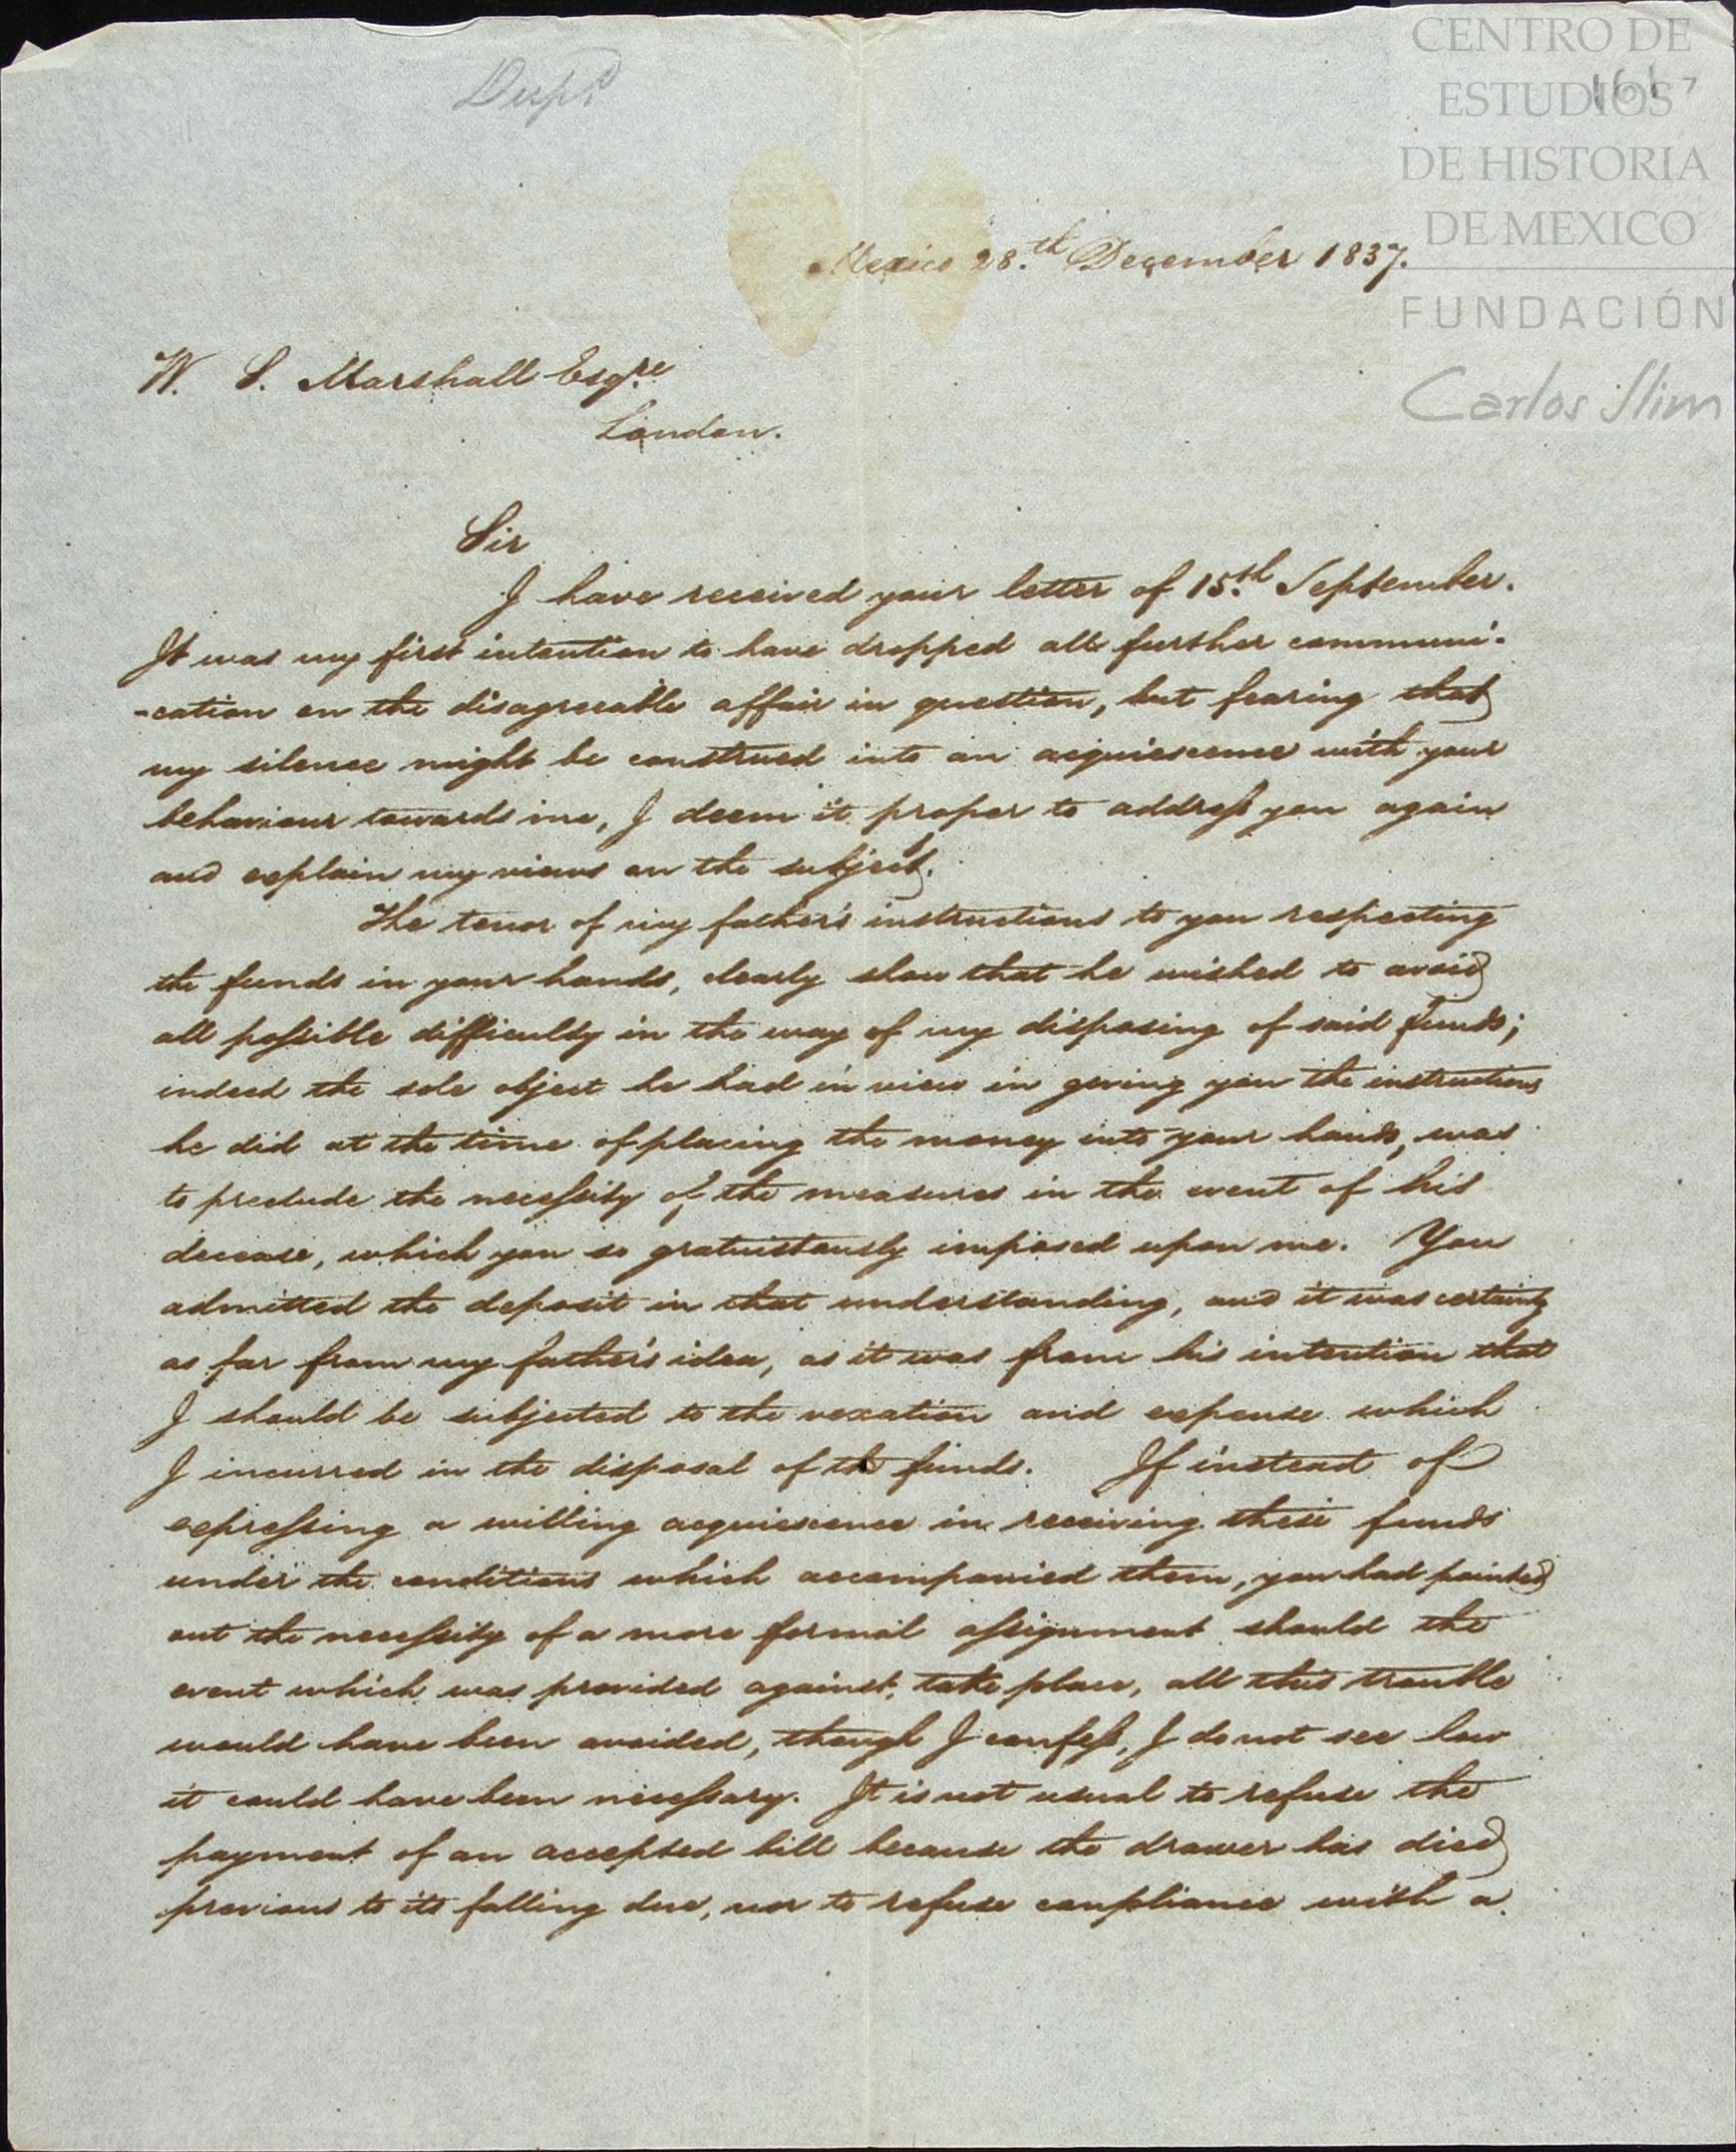 CENTRO DE
ESTUDIOS
DE HISTORIA
DE MEXICO
FUNDACIÓN
Carlos Slim
Dup.d
Mexico 28.th December 1837.
W. S. Marshall Esq.re
London.
Sir
I have received your letter of 15.th September.
It was my first intention to have dropped all further communi-
-cation on the disagreeable affair in question, but fearing that
my silence might be construed into an acquiescence with your
behaviour towards me, I deem it proper to address you again
and explain my views on the subject.
The tenor of my father's instructions to you respecting
the funds in your hands, clearly show that he wished to avoid
all possible difficulty in the way of my disposing of said funds;
indeed the sole object he had in view in giving you the instructions
he did at the time of placing the money into your hands, was
to preclude the necessity of the measures in the event of his
decease, which you so gratuistously imposed upon me. You
admitted the deposit in that understanding, and it was certainly
as far from my father's idea, as it was from his intention that
I should be subjected to the vexation and expense which
I incurred in the disposal of the funds. If instead of
expressing a willing acquiescence in receiving these funds
under the conditions which accompanied them, you had pointed
out the necessity of a more formal assignment should the
event which was provided against, take place, all this trouble
would have been avoided, though I confess, I do not see how
it could have been necessary. It is not usual to refuse the
payment of an accepted bill because the drawer has died
previous to its falling due, nor to refuse compliance with a